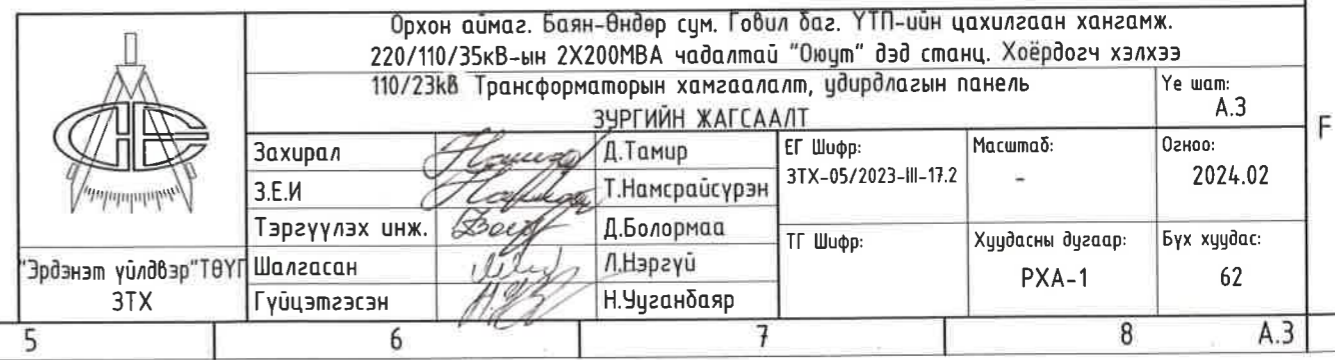 Орхон аймаг. Баян-Өндөр сум. Говил баг. ҮТП-ийн цахилгаан хангамж.
220/110/35кВ-ын 2X200МВА чадалтай "Оюут" дэд станц. Хоёрдогч хэлхээ
110/23kВ Трансформаторын хамгаалалт, удирдлагын панель
ЗУРГИЙН ЖАГСААЛТ
Үе шат:
А.3
Захирал Д.Тамир
З.Е.И Т.Намсрайсүрэн
Тэргүүлэх инж. Д.Болормаа
Шалгасан Л.Нэргүй
Гүйцэтгэсэн Н.Ууганбаяр
ЕГ Шифр:
ЗТХ-05/2023-III-17.2
Масштаб:
-
Огноо:
2024.02
ТГ Шифр:
Хуудасны дугаар:
РХА-1
Бүх хуудас:
62
"Эрдэнэт үйлдвэр"ТӨҮГ
ЗТХ
F
5 6 7 8 А.3